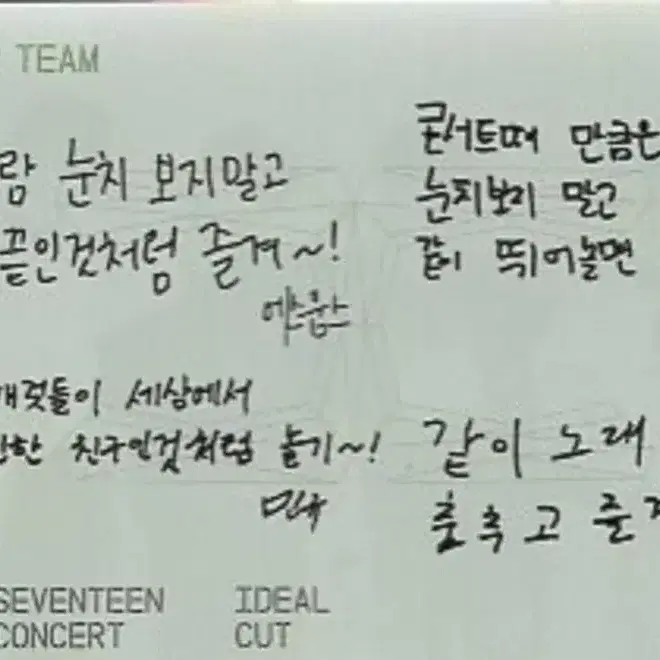 TEAM
람 눈치 보지말고
끝인것처럼 즐겨~!
에스쿱스
콘서트때 만큼은
눈치보지 말고
같이 뛰어놀면
캐럿들이 세상에서
친구인것처럼 놀기~!
민규
같이 노래
춤추고 즐
SEVENTEEN
CONCERT
IDEAL
CUT